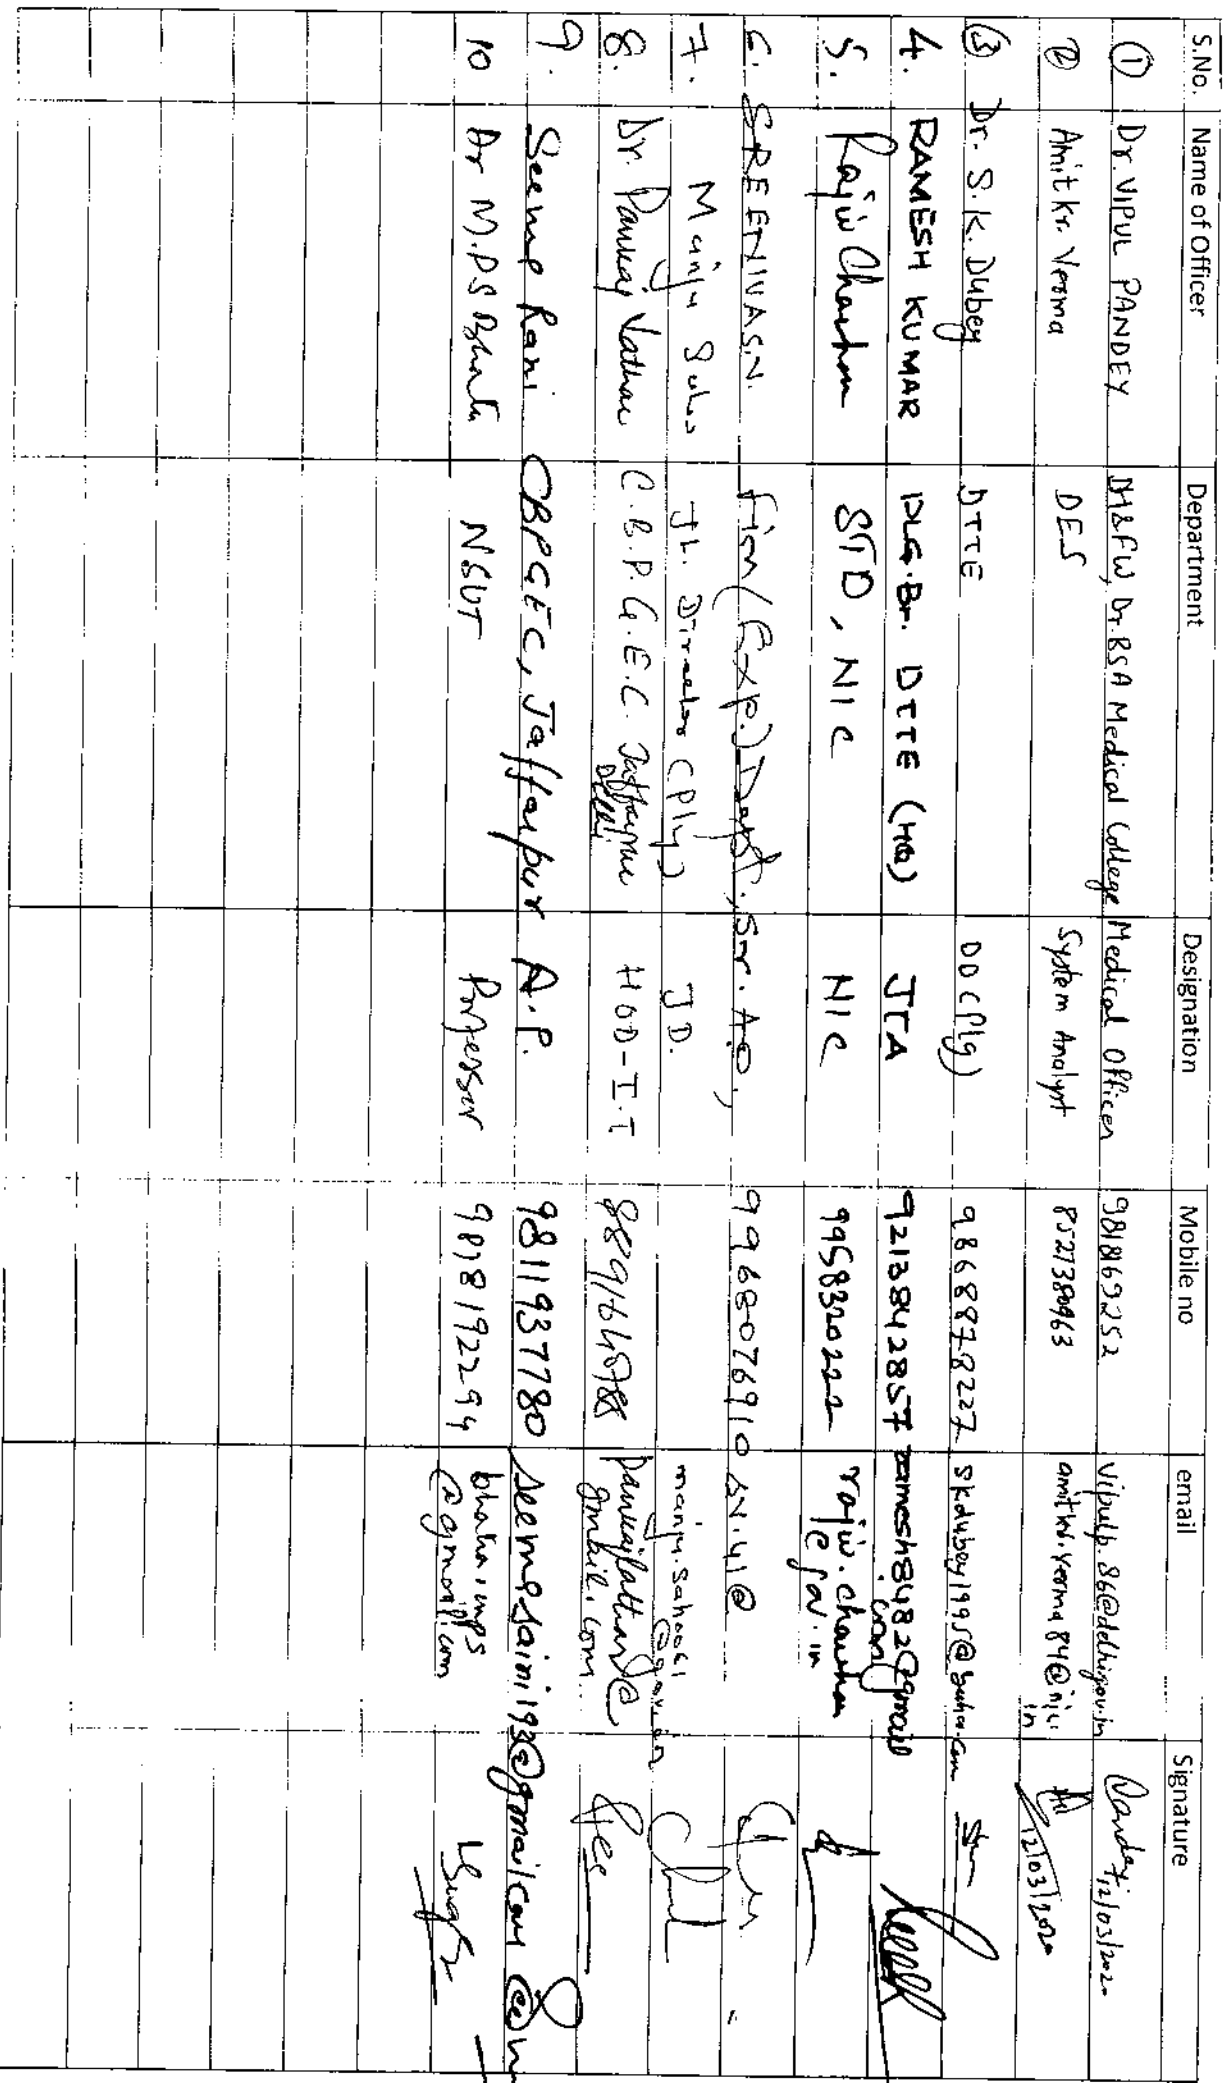 S.No. Name of Officer Department Designation Mobile no email Signature
① Dr. VIPUL PANDEY DH&FW, Dr. BSA Medical College Medical Officer 9818169252 vipulp.86@delhi.gov.in Pandey 12/03/2020
② Amit kr. Verma DES System Analyst 8527380963 amitkr.verma84@nic.in 12/03/2020
③ Dr. S.K. Dubey DTTE DD (Plg) 9868878227 skdubey1995@
4. RAMESH KUMAR PLG.Br. DTTE (HQ) JTA 9213842857
5. Rajiv Chauhan STD, NIC NIC 9958320222 rajiv.chauhan
@gov.in
6. SREENIVAS.N. Fin (Exp.) Deptt., Sr. A.O, 9968076910 sv.41@
7. Manju Jt. Director (Plg) J D.
8. Dr. Pankaj Lathar C.B.P.G.E.C. HOD-I.T pankajlathar@
gmail.com
9. Seema Rani CBPGEC, Jaffarpur A.P. 9811937780 seemasaini193@gmail.com
10 Dr M.P.S Bhatia NSUT Professor 9818192294 bhatia.mps
@gmail.com